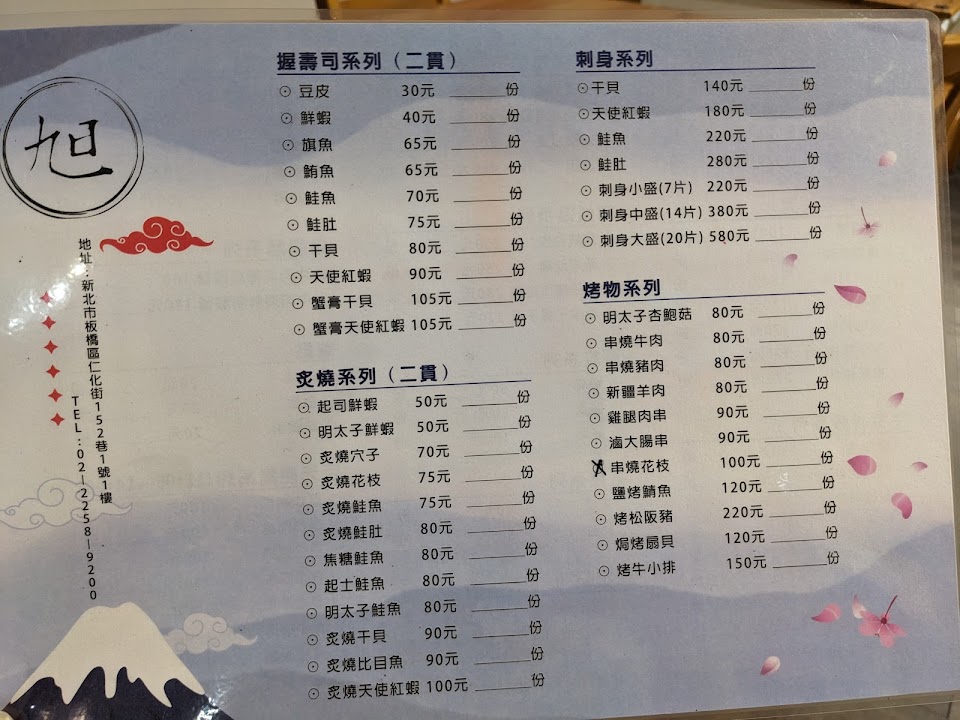 旭
地址：新北市板橋區仁化街152巷1號1樓
TEL：02-2258-9200
握壽司系列（二貫）
豆皮 30元 ______份
鮮蝦 40元 ______份
旗魚 65元 ______份
鮪魚 65元 ______份
鮭魚 70元 ______份
鮭肚 75元 ______份
干貝 80元 ______份
天使紅蝦 90元 ______份
蟹膏干貝 105元 ______份
蟹膏天使紅蝦 105元 ______份
炙燒系列（二貫）
起司鮮蝦 50元 ______份
明太子鮮蝦 50元 ______份
炙燒穴子 70元 ______份
炙燒花枝 75元 ______份
炙燒鮭魚 75元 ______份
炙燒鮭肚 80元 ______份
焦糖鮭魚 80元 ______份
起士鮭魚 80元 ______份
明太子鮭魚 80元 ______份
炙燒干貝 90元 ______份
炙燒比目魚 90元 ______份
炙燒天使紅蝦 100元 ______份
刺身系列
干貝 140元 ______份
天使紅蝦 180元 ______份
鮭魚 220元 ______份
鮭肚 280元 ______份
刺身小盛(7片) 220元 ______份
刺身中盛(14片) 380元 ______份
刺身大盛(20片) 580元 ______份
烤物系列
明太子杏鮑菇 80元 ______份
串燒牛肉 80元 ______份
串燒豬肉 80元 ______份
新疆羊肉 80元 ______份
雞腿肉串 90元 ______份
滷大腸串 90元 ______份
串燒花枝 100元 ______份
鹽烤鯖魚 120元 ______份
烤松阪豬 220元 ______份
焗烤扇貝 120元 ______份
烤牛小排 150元 ______份